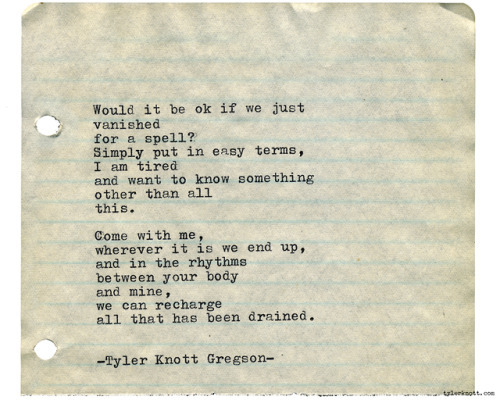 Would it be ok if we just
vanished
for a spell?
Simply put in easy terms,
I am tired
and want to know something
other than all
this.
Come with me,
wherever it is we end up,
and in the rhythms
between your body
and mine,
we can recharge
all that has been drained.
-Tyler Knott Gregson-
tylerknott.com